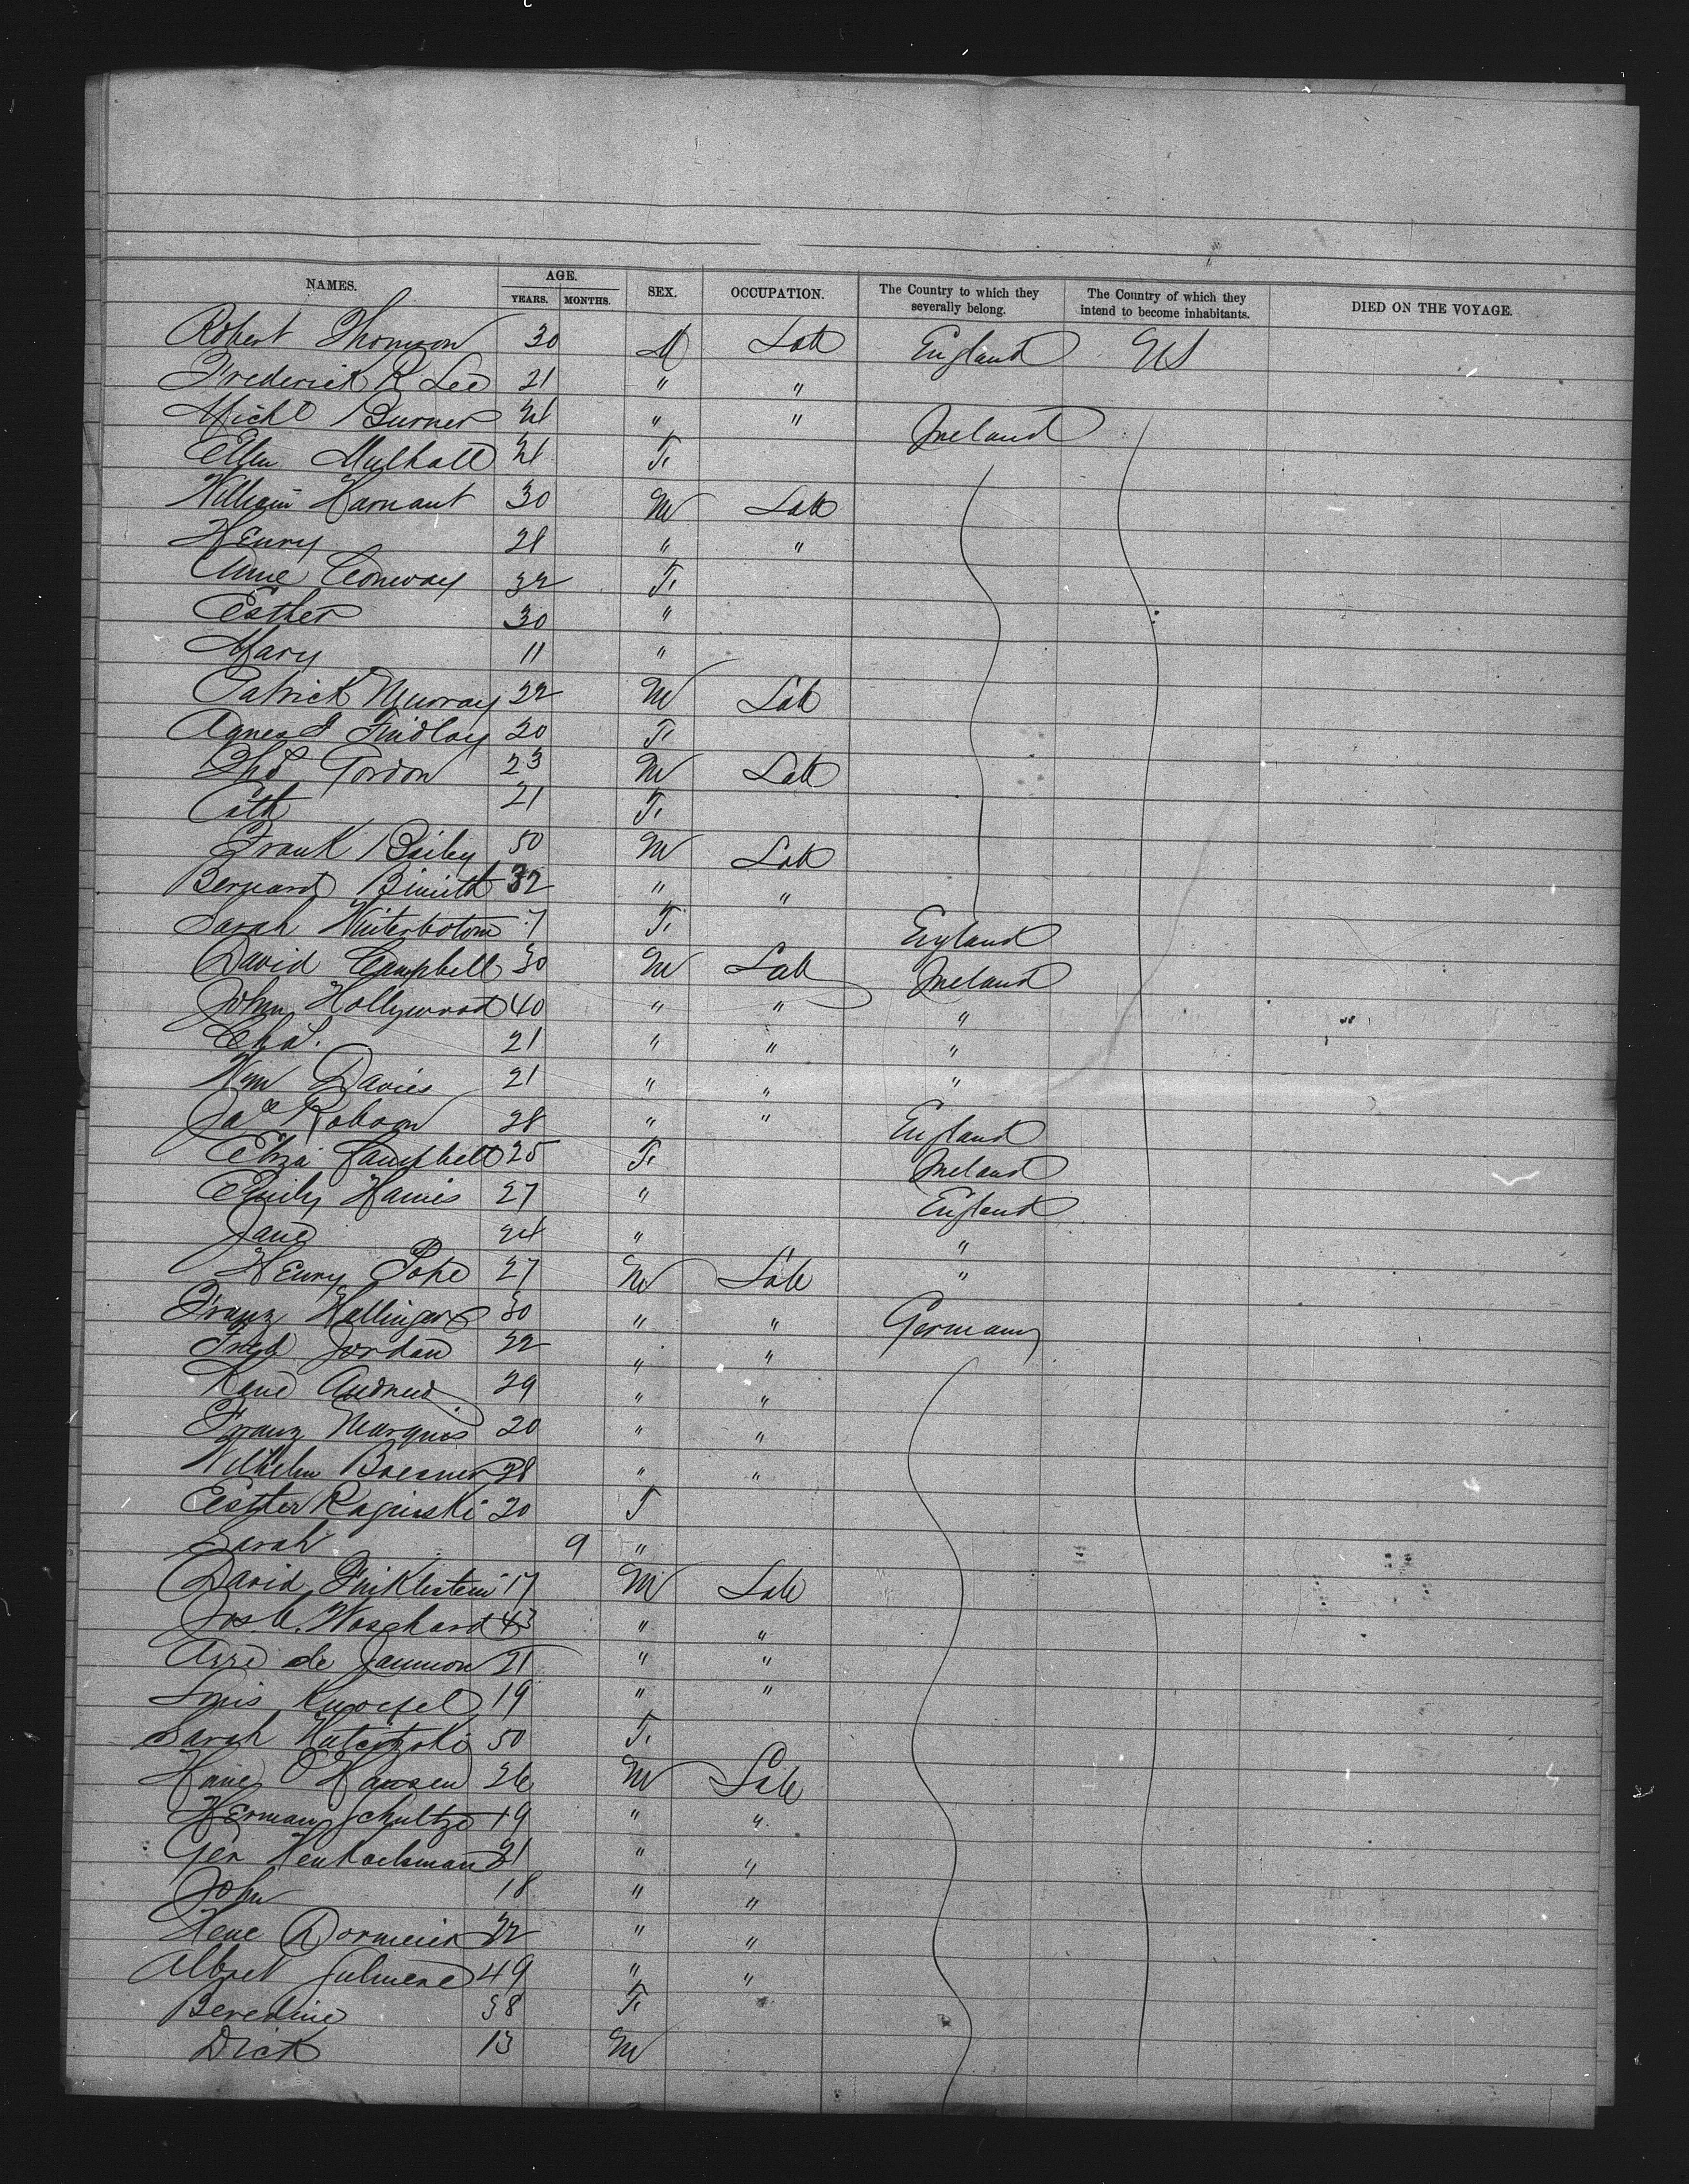 NAMES. AGE. YEARS. MONTHS. SEX. OCCUPATION. The Country to which they severally belong. The Country of which they intend to become inhabitants. DIED ON THE VOYAGE.
Robert Thomson 30 M Lab England US
Frederick R Lee 21 " "
Michl Burner 21 " " Ireland
Ellen Mulhall 21 F.
William Harnant 30 M Lab
Henry 28 " "
Anne Conway 32 F.
Esther 30 "
Mary 11 "
Patrick Murray 22 M Lab
Agnes J Findlay 20 F.
Thos Gordon 23 M Lab
Cath 21 F.
Frank Bailey 50 M Lab
Bernard 32 " "
Sarah Winterbotom 7 F. England
David Campbell 30 M Lab Ireland
John Hollywood 40 " " "
Chas. 21 " " "
Wm Davies 21 " " "
Jas Robson 28 " " England
Eliza Campbell 25 F. Ireland
Emily Harris 27 " England
Jane 24 " "
Henry Pope 27 M Lab "
Franz Hellinger 30 " " Germany
Jordan 22 " "
Andrew 29 " "
Franz Marquis 20 " "
Wilhelm 28 " "
Esther Raginski 20 F
Sarah 9 "
David Finklestein 17 M Lab
Jos. C. 43 " "
de 21 " "
Louis 19 " "
Sarah 50 F.
Hans Hansen 26 M Lab
Herman Schultze 19 " "
21 " "
John 18 " "
Dormeier 22 " "
Albret 49 " "
38 F.
Dick 13 M